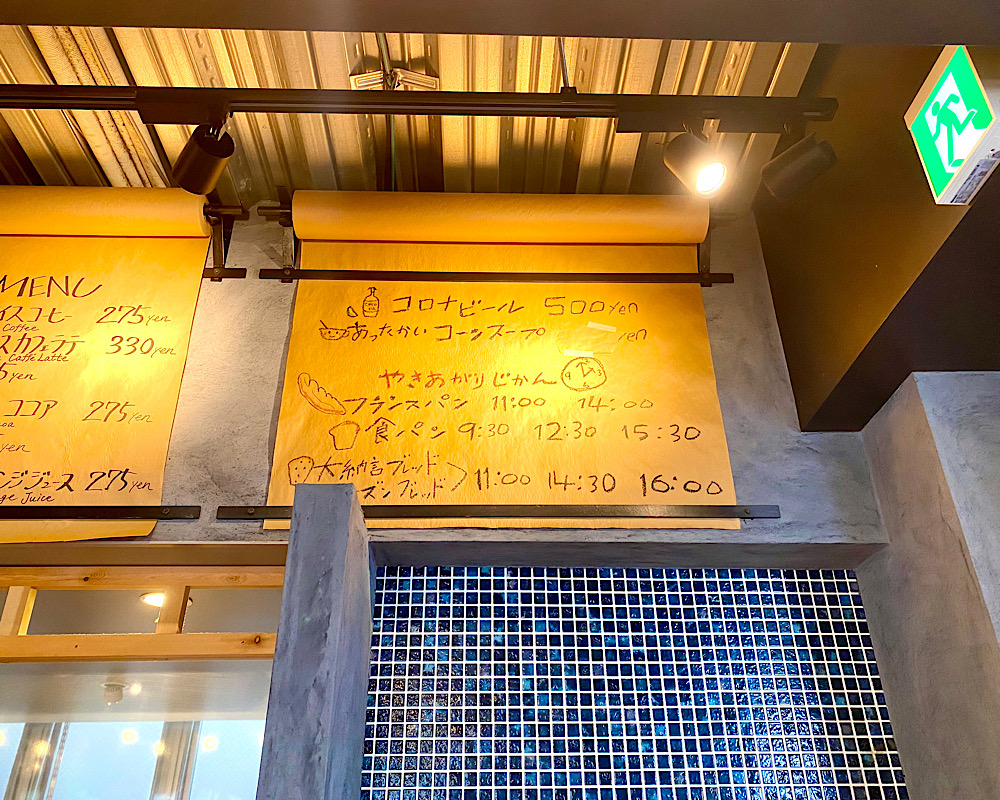 MENU
イスコーヒー 275yen
Coffee
スカフェラテ 330yen
Caffe Latte
5yen
ココア 275yen
oa
yen
ンジジュース 275yen
ge Juice
コロナビール 500yen
あったかいコーンスープ yen
やきあがりじかん
フランスパン 11:00 14:00
食パン 9:30 12:30 15:30
大納言ブレッド
ズンブレッド 11:00 14:30 16:00